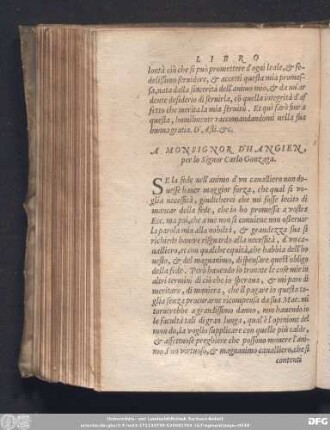 LIBRO
lontà ciò che si può promettere d'ogni leale, & fe-
delissimo seruidore, & accetti questa mia promes-
sa, nata dalla sincerità dell'animo mio, & da un'ar
dente desiderio di seruirla, cō quella integrità d'af
fetto che merita la mia seruitù. Et qui farò fine a
questa, humilmente raccomandandomi nella sua
buona gratia. D'Asti. &c.
A MONSIGNOR D'HANGIEN,
per lo Signor Carlo Gonzaga.
SE la fede nell'animo d'vn caualliero non do-
uesse hauer maggior forza, che qual si vo-
glia necessità, giudicherei che mi fusse lecito di
mancar della fede, che io ho promessa a vostra
Ecc. ma poi, che a me non si conuiene non osseruar
la parola mia alla nobiltà, & grandezza sua si
richiede hauere risguardo alla necessità, d'un ca-
ualliero, et con qualche equità, che habbia dell'ho
nesto, & del magnanimo, dispensare quest'obligo
della fede. Però hauendo io trouate le cose mie in
altri termini di ciò che io speraua, & mi pare di
meritare, di maniera, che il pagar io questa ta-
glia senza procurarne ricompensa da sua Mae. mi
tornerebbe a grandissimo danno, non hauendo io
le facultà tali di gran lunga, qual'è l'opinione del
mondo, la voglio supplicare con quelle più calde,
& affettuose preghiere che possono mouere l'ani-
mo d'un virtuoso, & magnanimo caualliero, che si
contenti